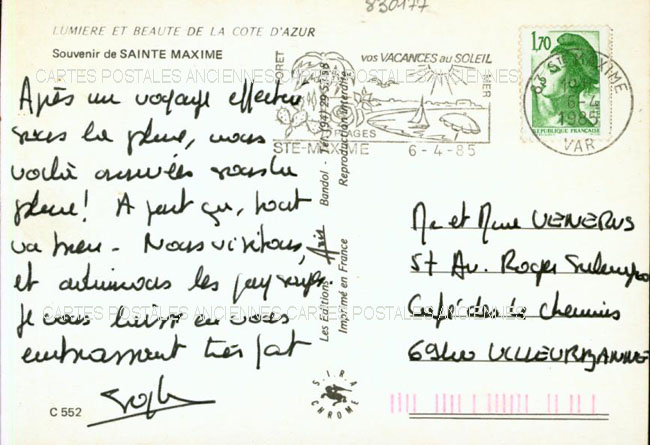 830177
LUMIERE ET BEAUTE DE LA COTE D'AZUR
Souvenir de SAINTE MAXIME
CARTES POSTALES ANCIENNES CARTES POSTALES ANCIENNES CARTES POSTALES ANCIENNES
Après un voyage effectué
sous la pluie, nous
voilà arrivées sous la
pluie! A part ça, tout
va bien - Nous visitons,
et admirons les paysages
Je vous laisse en vous
embrassant très fort
Sophie
C 552
FORET
VOS VACANCES AU SOLEIL
MER
PLAGES
STE-MAXIME 6-4-85
1,70
REPUBLIQUE FRANÇAISE
83 STE MAXIME
6-4
1985
VAR
Les Editions Aris Bandol - Tél. (94) 29
Imprimé en France Reproduction interdite
SIRA
CHROME
Mr et Mme VENERUS
57 Av. Roger Salengro
Café des Chemins
CARTES POSTALES ANCIENNES CARTES POSTALES ANCIENNES CARTES POSTALES ANCIENNES
69100 VILLEURBANNE